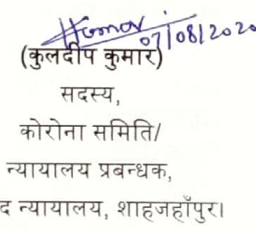 07/08/2020
(कुलदीप कुमार)
सदस्य,
कोरोना समिति/
न्यायालय प्रबन्धक,
द न्यायालय, शाहजहाँपुर।